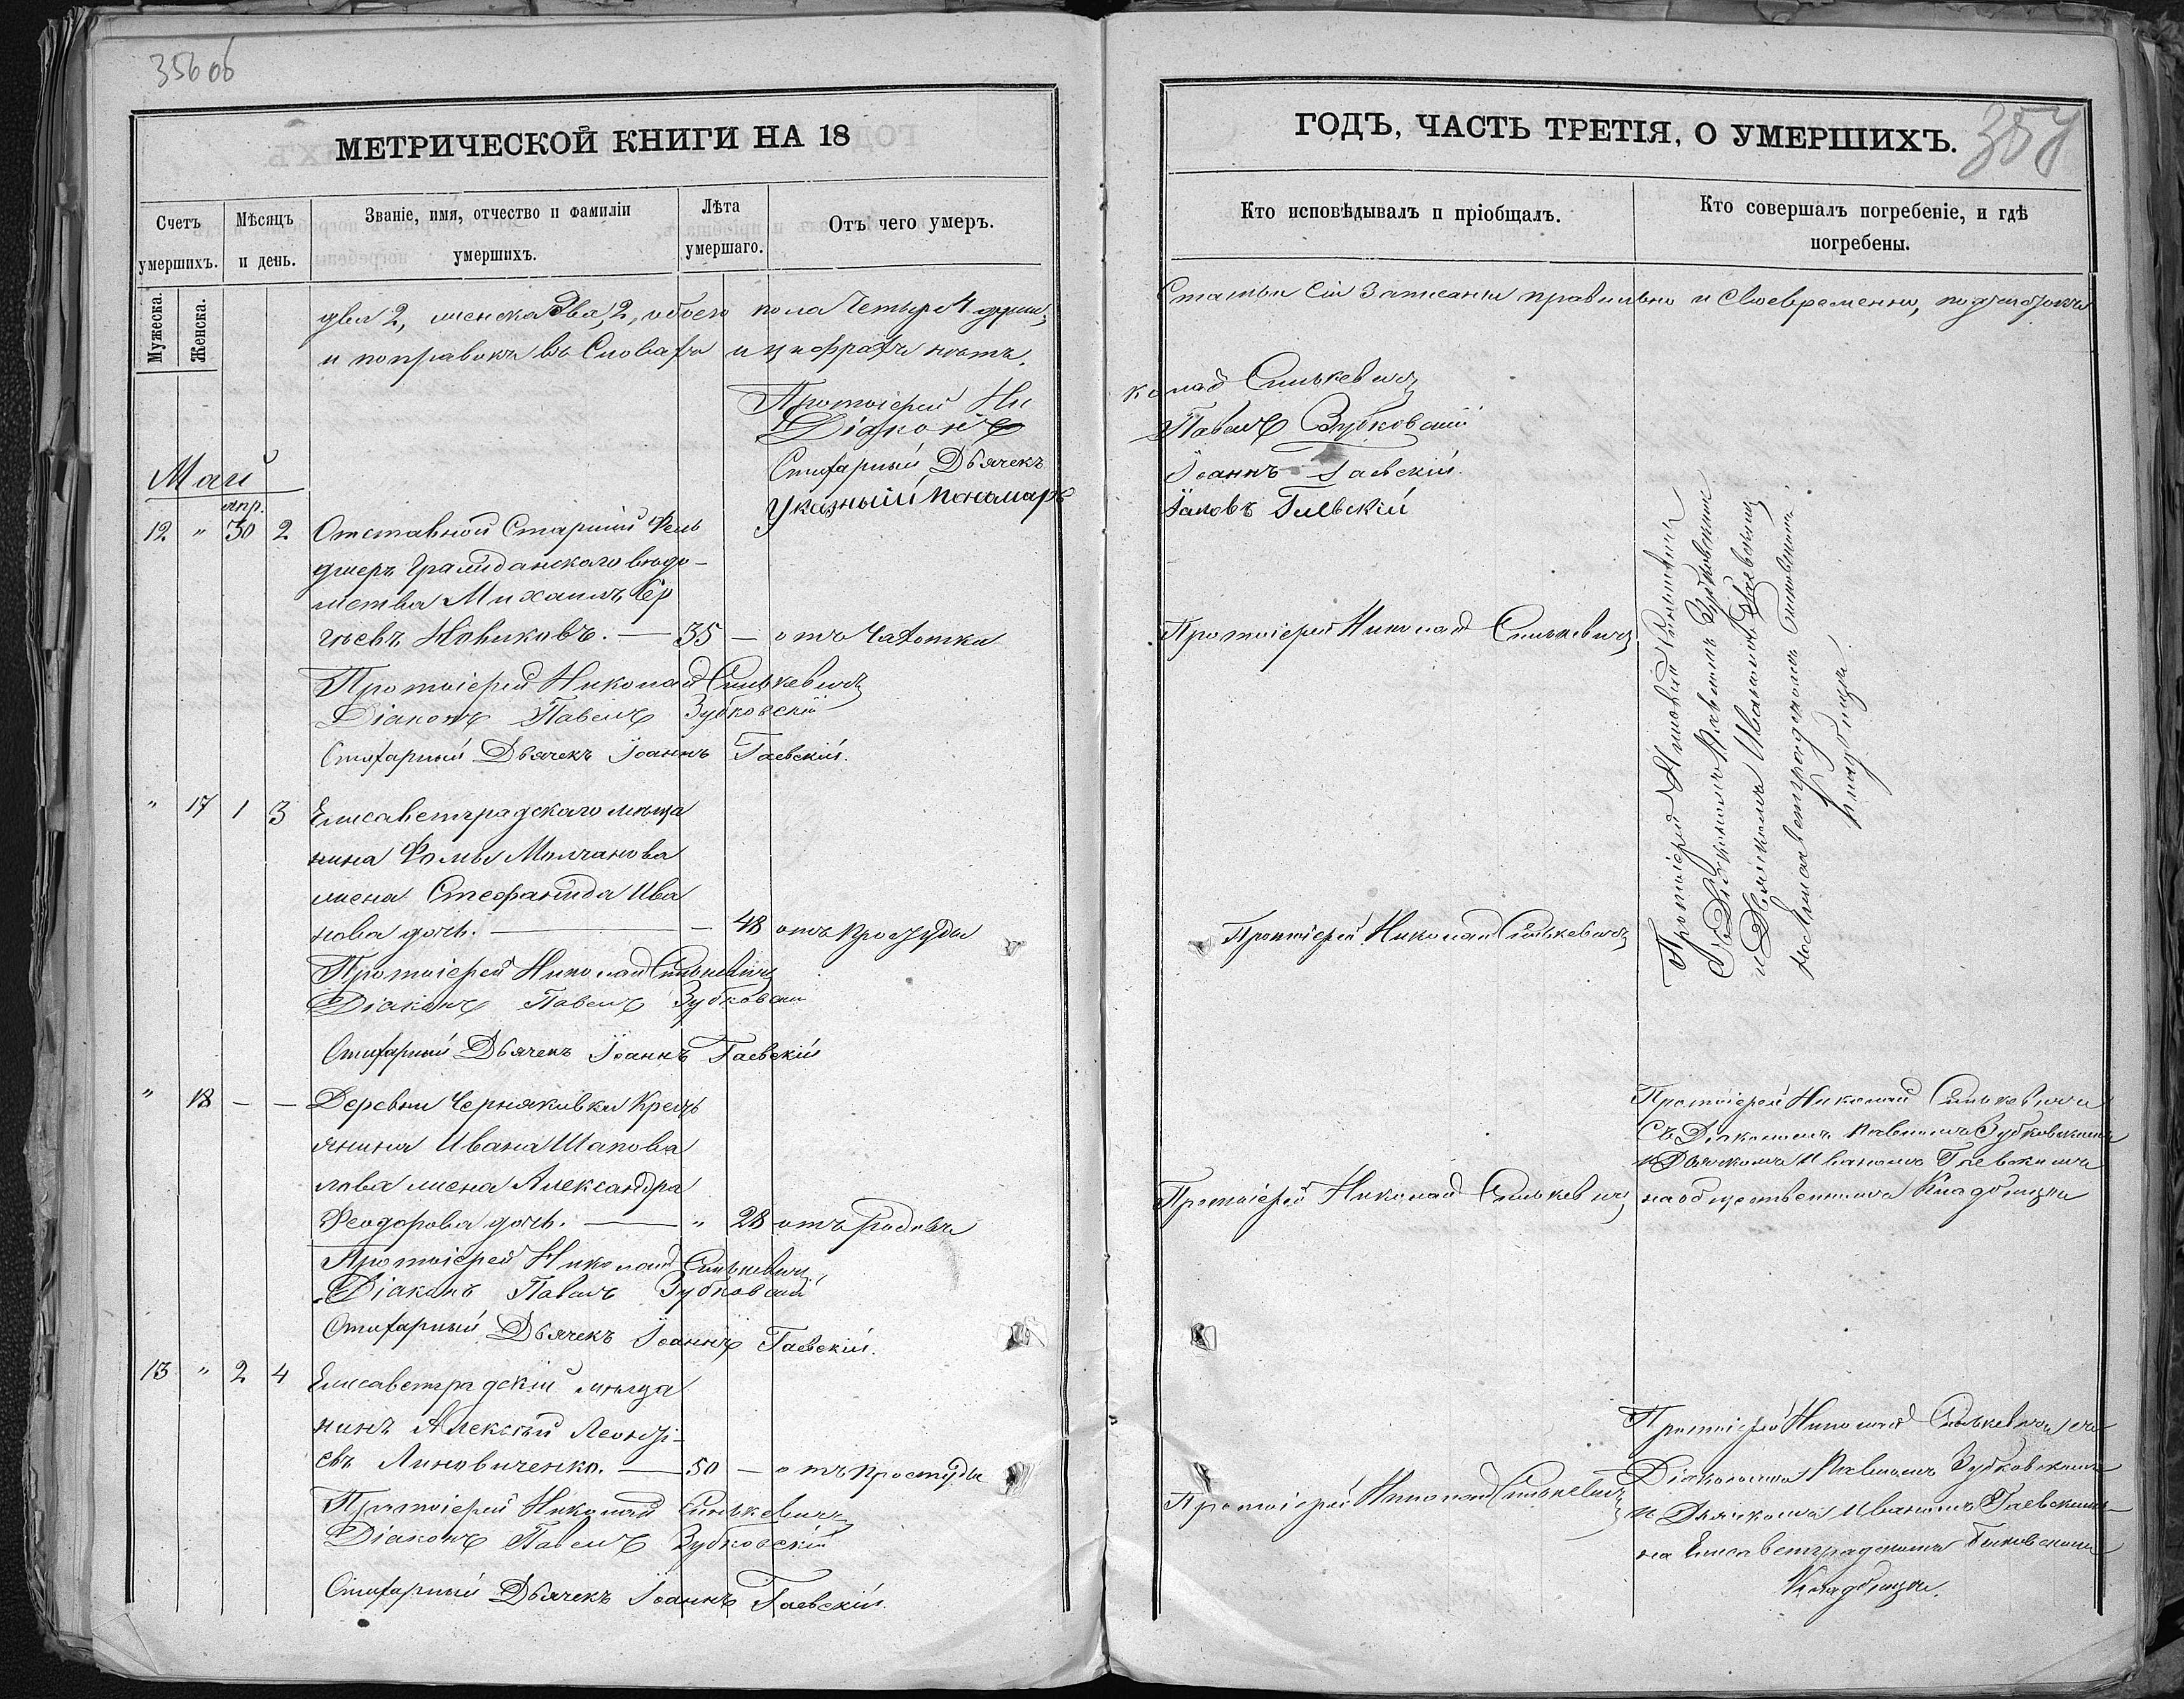 356 об
МЕТРИЧЕСКОЙ КНИГИ НА 18
Счетъ умершихъ.
Мужеска.
Женска.
Мѣсяцъ и день.
Званіе, имя, отчество и фамиліи умершихъ.
Лѣта умершаго.
Отъ чего умеръ.
два 2, женска два, 2, обоего пола Четыре 4 души,
и поправокъ въ Словахъ и цифрахъ нѣтъ.
Протоіерей Ни
Діаконъ
Стихарный Дьячекъ
Указный Панамарь
Май
апр.
12 " 30 2 Отставной Старшій Фель
дшеръ Гражданскаго вѣдо-
мства Михаилъ Сер
гѣевъ Новиковъ. — 35 — отъ Чахотки
Протоіерей Николай Синькевичъ
Діаконъ Павелъ Зубковскій
Стихарный Дьячекъ Іоаннъ Гаевскій.
" 17 1 3 Елисаветградскаго мѣща
нина Фомы Молчанова
жена Стефанида Ива
нова дочь. — — 48 отъ простуды
Протоіерей Николай Синькевичъ
Діаконъ Павелъ Зубковскій
Стихарный Дьячекъ Іоаннъ Гаевскій
" 18 — — Деревни Черняковки Крест
янина Ивана Шапова
лова жена Александра
Феодорова дочь. — " 28 отъ родовъ
Протоіерей Николай Синькевичъ
Діаконъ Павелъ Зубковскій
Стихарный Дьячекъ Іоаннъ Гаевскій.
13 " 2 4 Елисаветградскій мѣща
нинъ Алексѣй Леонті-
евъ Линовиченко. — 50 — отъ простуды
Протоіерей Николай Синькевичъ
Діаконъ Павелъ Зубковскій
Стихарный Дьячекъ Іоаннъ Гаевскій.
ГОДЪ, ЧАСТЬ ТРЕТІЯ, О УМЕРШИХЪ.
357
Кто исповѣдывалъ и пріобщалъ.
Кто совершалъ погребеніе, и гдѣ погребены.
Статьи сіи записаны правильно и своевременно, подчистокъ
колай Синькевичъ
Павелъ Зубковскій
Іоаннъ Гаевскій.
Іаковъ
Протоіерей Николай Синькевичъ
Протоіерей Николай Синькевичъ
Протоіерей Николай Синькевичъ
съ Діакономъ Павломъ Зубковскимъ
и Дьячкомъ Иваномъ Гаевскимъ
на Елисаветградскомъ
Кладбищѣ.
Протоіерей Николай Синькевичъ
Протоіерей Николай Синькевичъ
Съ Діакономъ Павломъ Зубковскимъ
и Дьячкомъ Иваномъ Гаевскимъ
на общественномъ Кладбищѣ
Протоіерей Николай Синькевичъ
Протоіерей Николай Синькевичъ съ
Діакономъ Павломъ Зубковскимъ
и Дьячкомъ Иваномъ Гаевскимъ
на Елисаветградскомъ Быковскомъ
Кладбищѣ.